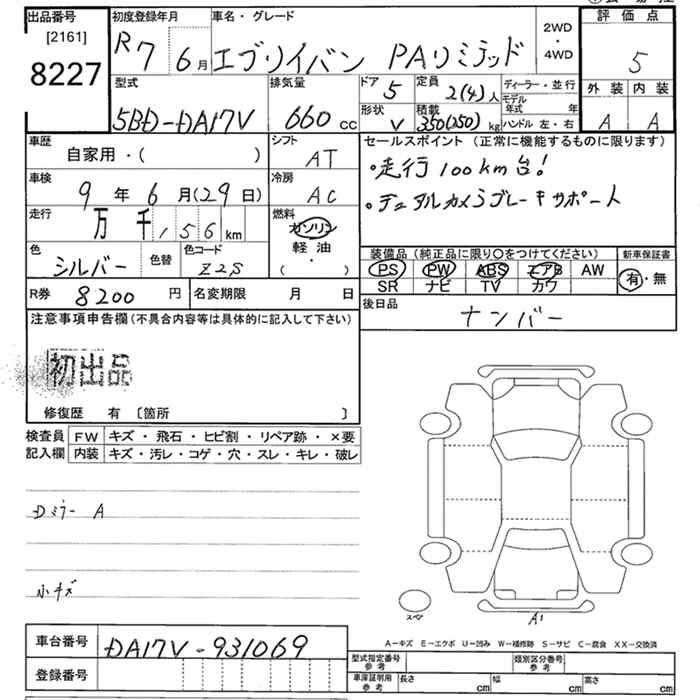 出品番号 初度登録年月 車名・グレード 評価点
[2161] R7 6月 エブリイバン PAリミテッド 2WD・4WD 5
8227
型式 排気量 ドア 5 定員 2(4)人 ディーラー・並行 外装 内装
5BD-DA17V 660cc 形状 V 積載 350(250)kg モデル年式 年 ハンドル 左・右 A A
車歴 シフト セールスポイント (正常に機能するものに限ります)
自家用・( ) AT ・走行100km台!
車検 冷房 ・デュアルカメラブレーキサポート
9年6月(29日) AC
走行 燃料
万 千 156km ガソリン
色 色替 色コード 軽油 装備品 (純正品に限り〇をつけてください) 新車保証書
シルバー Z2S ・( ) PS PW ABS エアB AW 有・無
SR ナビ TV カワ
R券 8200円 名変期限 月 日 後日品
ナンバー
注意事項申告欄(不具合内容等は具体的に記入して下さい)
初出品
修復歴 有 〔箇所 〕
検査員 FW キズ・飛石・ヒビ割・リペア跡・×要
記入欄 内装 キズ・汚レ・コゲ・穴・スレ・キレ・破レ
Dミラー A
小キズ
スペア A1
A-キズ E-エクボ U-凹み W-補修跡 S-サビ C-腐食 XX-交換済
車台番号 DA17V-931069
型式指定番号 参考 類別区分番号 参考
登録番号 車庫証明用 参考 長さ cm 幅 cm 高さ cm